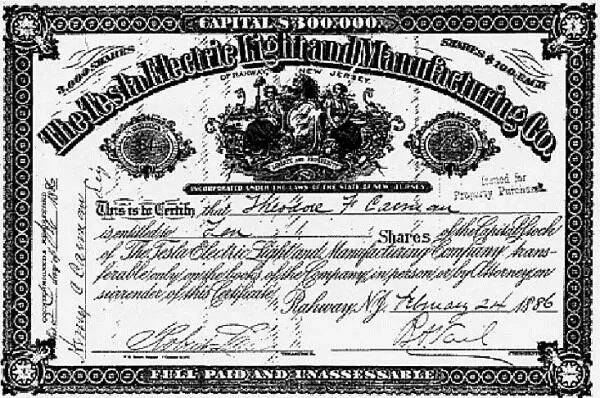 CAPITAL $300,000.
3,000 SHARES
SHARES $100 EACH.
The Tesla Electric Light and Manufacturing Co.
OF RAHWAY, NEW JERSEY.
LIBERTY AND PROSPERITY
INCORPORATED UNDER THE LAWS OF THE STATE OF NEW JERSEY
Issued for
Property Purchased
This is to Certify that Theodore F
is entitled to Ten Shares of the Capital Stock
of The Tesla Electric Light and Manufacturing Company trans-
ferable only on the books of the Company, in person, or by Attorney, on
surrender of this Certificate.
Rahway, N.J. February 24 1886
FULL PAID AND UNASSESSABLE